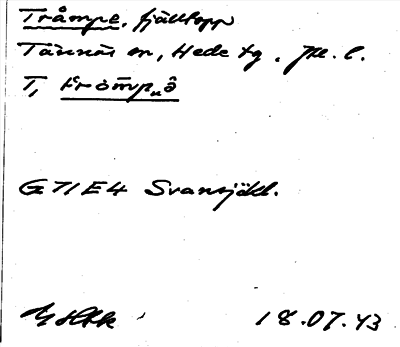 Tråmpe, fjälltopp
Tännäs sn, Hede tg. Jtl. l.
T,
G 71 E4 Svansjökl.
18.07.43